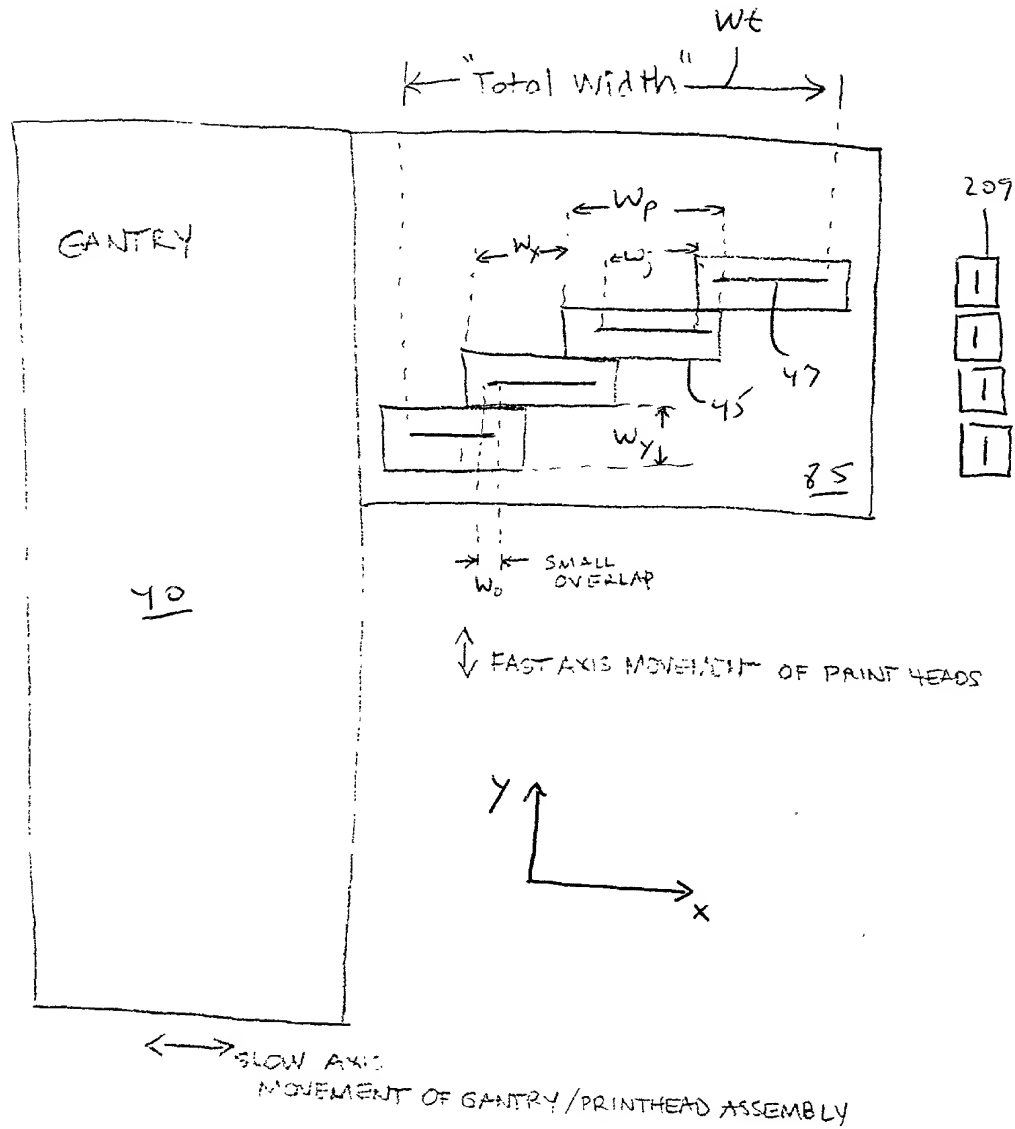 Wt
"Total Width"
209
GANTRY
Wp
Wx
Wj
47
45
Wy
85
SMALL
OVERLAP
Wo
40
FAST AXIS MOVEMENT OF PRINT HEADS
Y
X
SLOW AXIS
MOVEMENT OF GANTRY/PRINTHEAD ASSEMBLY